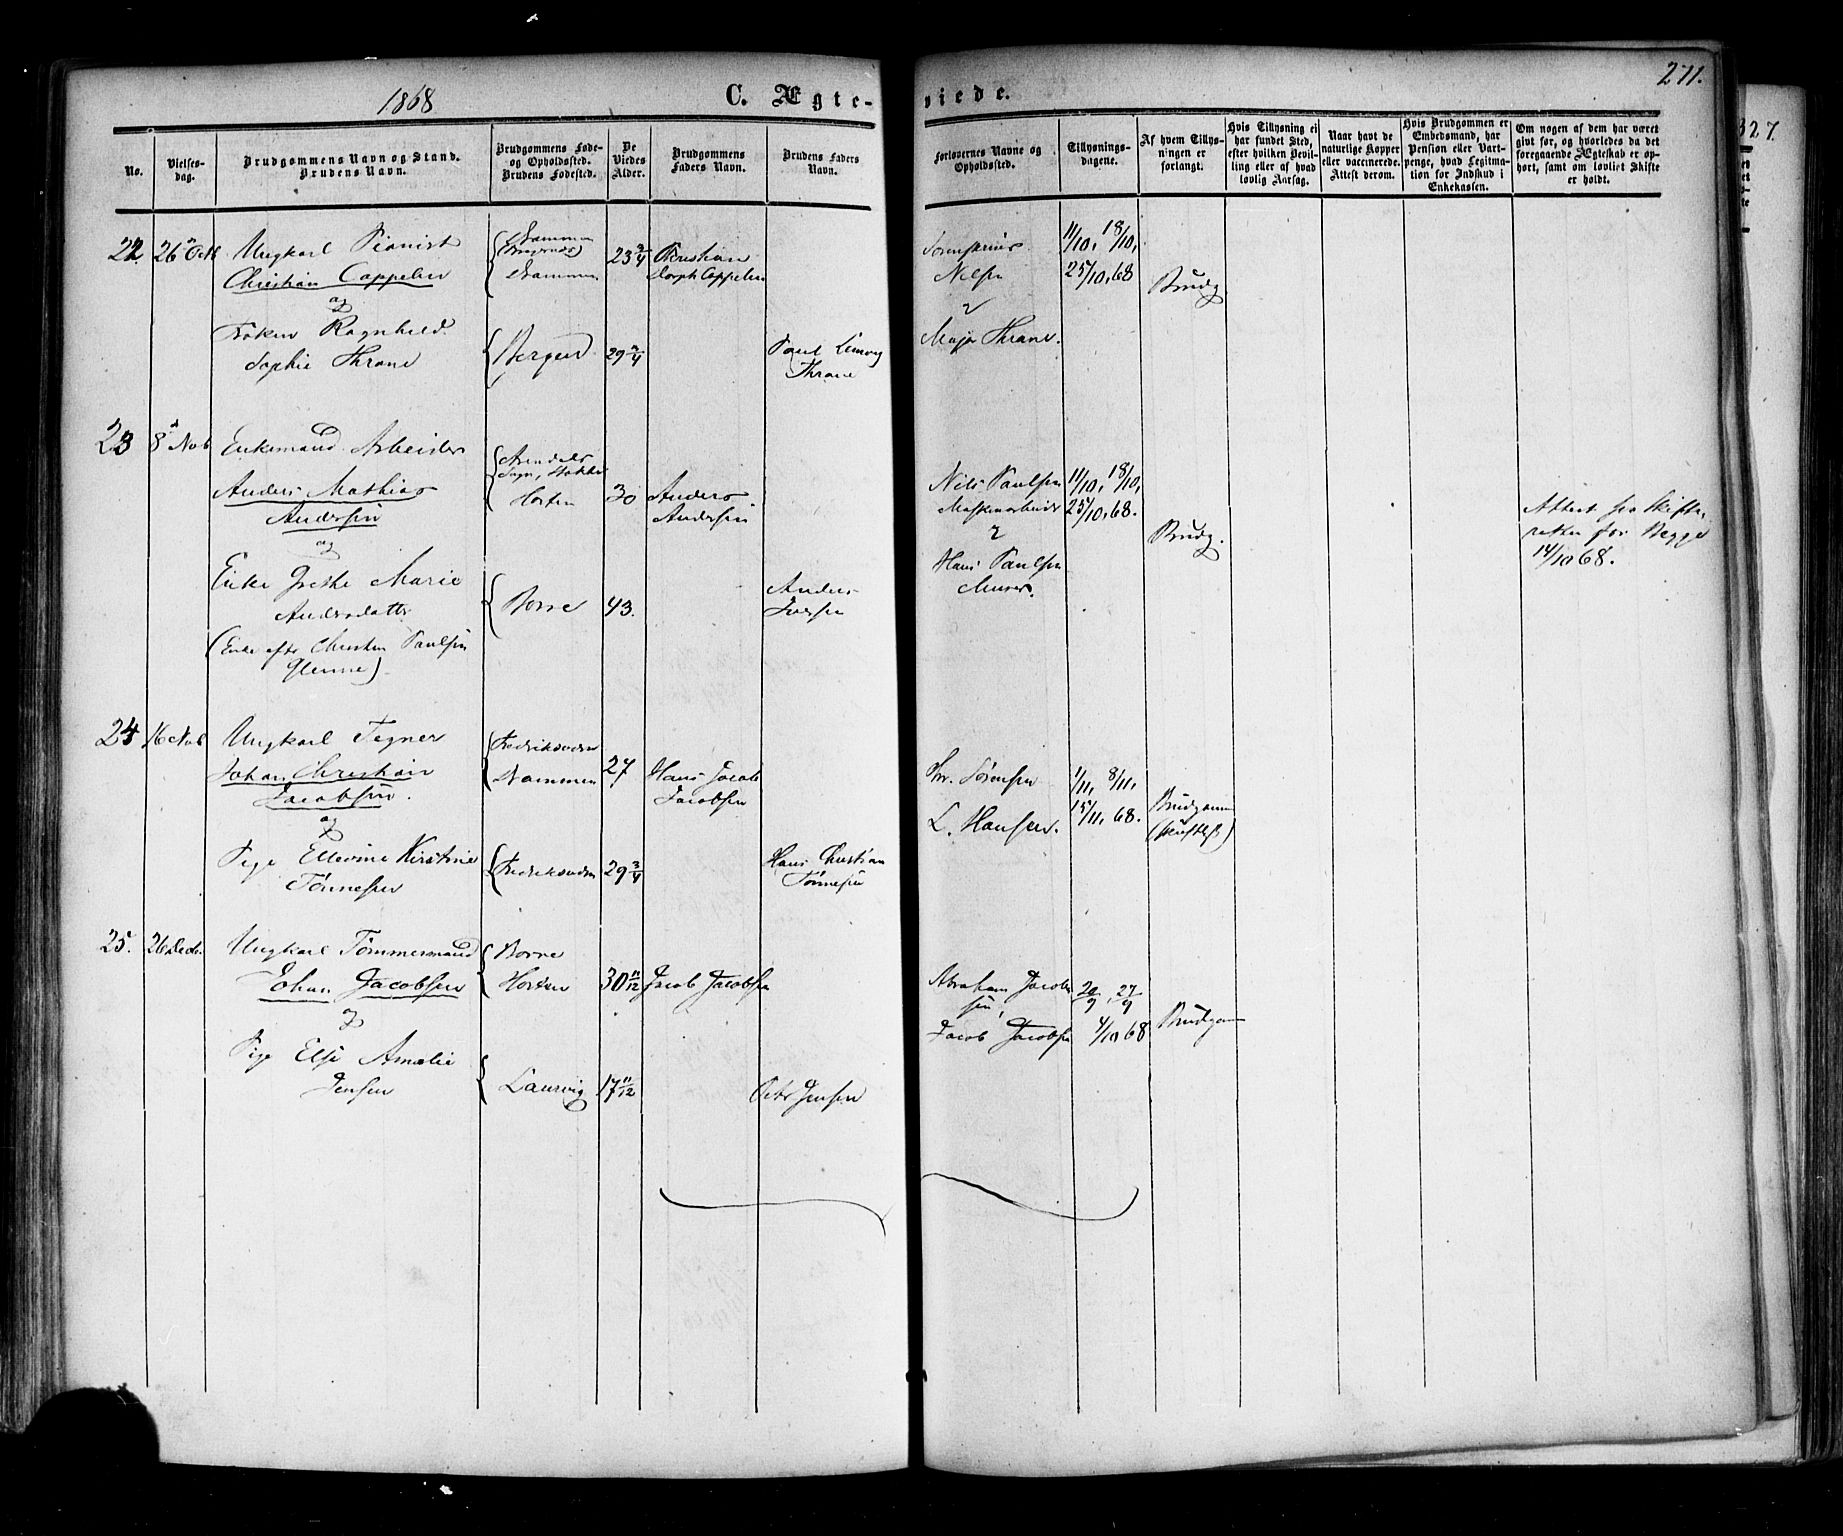 1868
C. Ægte-
viede.
271.
327.
No.
Vielses-
dag.
Brudgommens Navn og Stand.
Brudens Navn.
Brudgommens Føde-
og Opholdssted.
Brudens Fødested.
De
Viedes
Alder.
Brudgommens
Faders Navn.
Brudens Faders
Navn.
Forlovernes Navne og
Opholdssted.
Tillysnings-
dagene.
Af hvem Tillys-
ningen er
forlangt.
Hvis Tillysning ei
har fundet Sted,
efter hvilken Bevil-
ling eller af hvad
lovlig Aarsag.
Naar havt de
naturlige Kopper
eller vaccinerede.
Attest derom.
Hvis Brudgommen er
Embedsmand, har
Pension eller Vart-
penge, hvad Legitima-
tion for Indskud i
Enkekassen.
Om nogen af dem har været
givt før, og hvorledes da det
foregaaende Ægteskab er op-
hørt, samt om lovligt Skifte
er holdt.
22.
26 Oct
Ungkarl Pianist
Christian Cappelen
og
Frøken Ragnhild
Sophie Thrane
Drammen
Bragernæs
Drammen
Bergen
23 3/4
29 3/4
Christian
Dorph Cappelen
Paul Lemvig
Thrane
Nilsen
Major Thrane.
11/10, 18/10,
25/10, 68
Brudg.
23
8 Nob
Enkemand Arbeider
Anders Mathias
Andersen
og
Enke Grethe Marie
Andersdatter
(Enke efter Christen Paulsen
Glenne)
Arendals
Sogn,
Horten
Borre
30
43.
Anders
Andersen
Anders
Iversen
Nils Paulsen
Hans Paulsen
Murer.
11/10, 18/10,
25/10, 68.
Brudg.
Attest fra Skifte-
retten for Begge
14/10 68.
24
16 Nob
Ungkarl Tegner
Johan Christian
Jacobsen.
og
Pige Ellevine Kirstine
Tønnesen
Fredriksværn
Drammen
Fredriksværn
27
29 3/4
Hans Jacob
Jacobsen
Hans Christian
Tønnesen
Sørensen
L. Hansen.
1/11, 8/11,
15/11, 68.
Brudgom
(skriftlgt)
25.
26 Decb.
Ungkarl Tømmermand
Johan Jacobsen
og
Pige Else Amalie
Jensen
Borre
Horten
Laurvig
30 11/12
17 11/12
Jacob Jacobsen
Peter Jensen
Abraham Jacob-
sen,
Jacob Jacobsen
20/9, 27/9
4/10 68
Brudgom